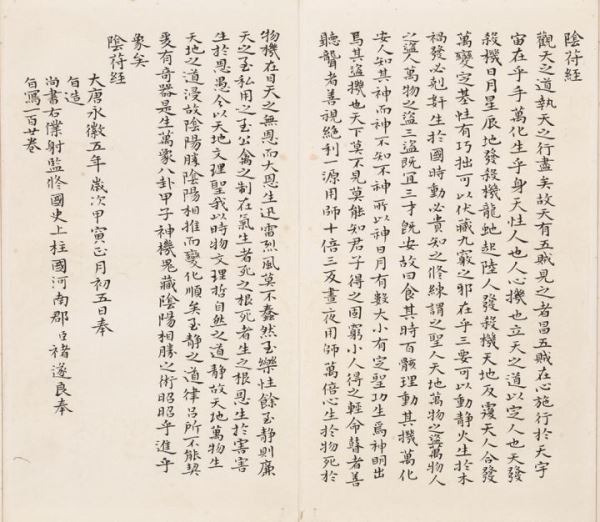 陰符經
觀天之道執天之行盡矣故天有五賊見之者昌五賊在心施行於天宇
宙在乎手萬化生乎身天性人也人心機也立天之道以定人也天發
殺機日月星辰地發殺機龍虵起陸人發殺機天地反覆天人合發
萬變定基性有巧拙可以伏藏九竅之邪在乎三要可以動靜火生於木
禍發必剋奸生於國時動必貴知之修練謂之聖人天地萬物之盜萬物人
之盜人萬物之盜三盜既宜三才既安故曰食其時百骸理動其機萬化
安人知其神而神不知不神所以神日月有數大小有定聖功生焉神明出
焉其盜機也天下莫不見莫能知君子得之固窮小人得之輕命瞽者善
聽聾者善視絕利一源用師十倍三反晝夜用師萬倍心生於物死於
物機在目天之無恩而大恩生迅雷烈風莫不蠢然至樂性餘至靜則廉
天之至私用之至公禽之制在氣生者死之根死者生之根恩生於害害
生於恩愚令以天地文理聖我以時物文理哲自然之道靜故天地萬物生
天地之道浸故陰陽勝陰陽相推而變化順矣至靜之道律呂所不能契
爰有奇器是生萬象八卦甲子神機鬼藏陰陽相勝之術昭昭乎進乎
象矣
陰符經
大唐永徽五年歲次甲寅正月初五日奉
旨造
尚書右僕射監修國史上柱國河南郡臣褚遂良奉
旨寫一百廿卷